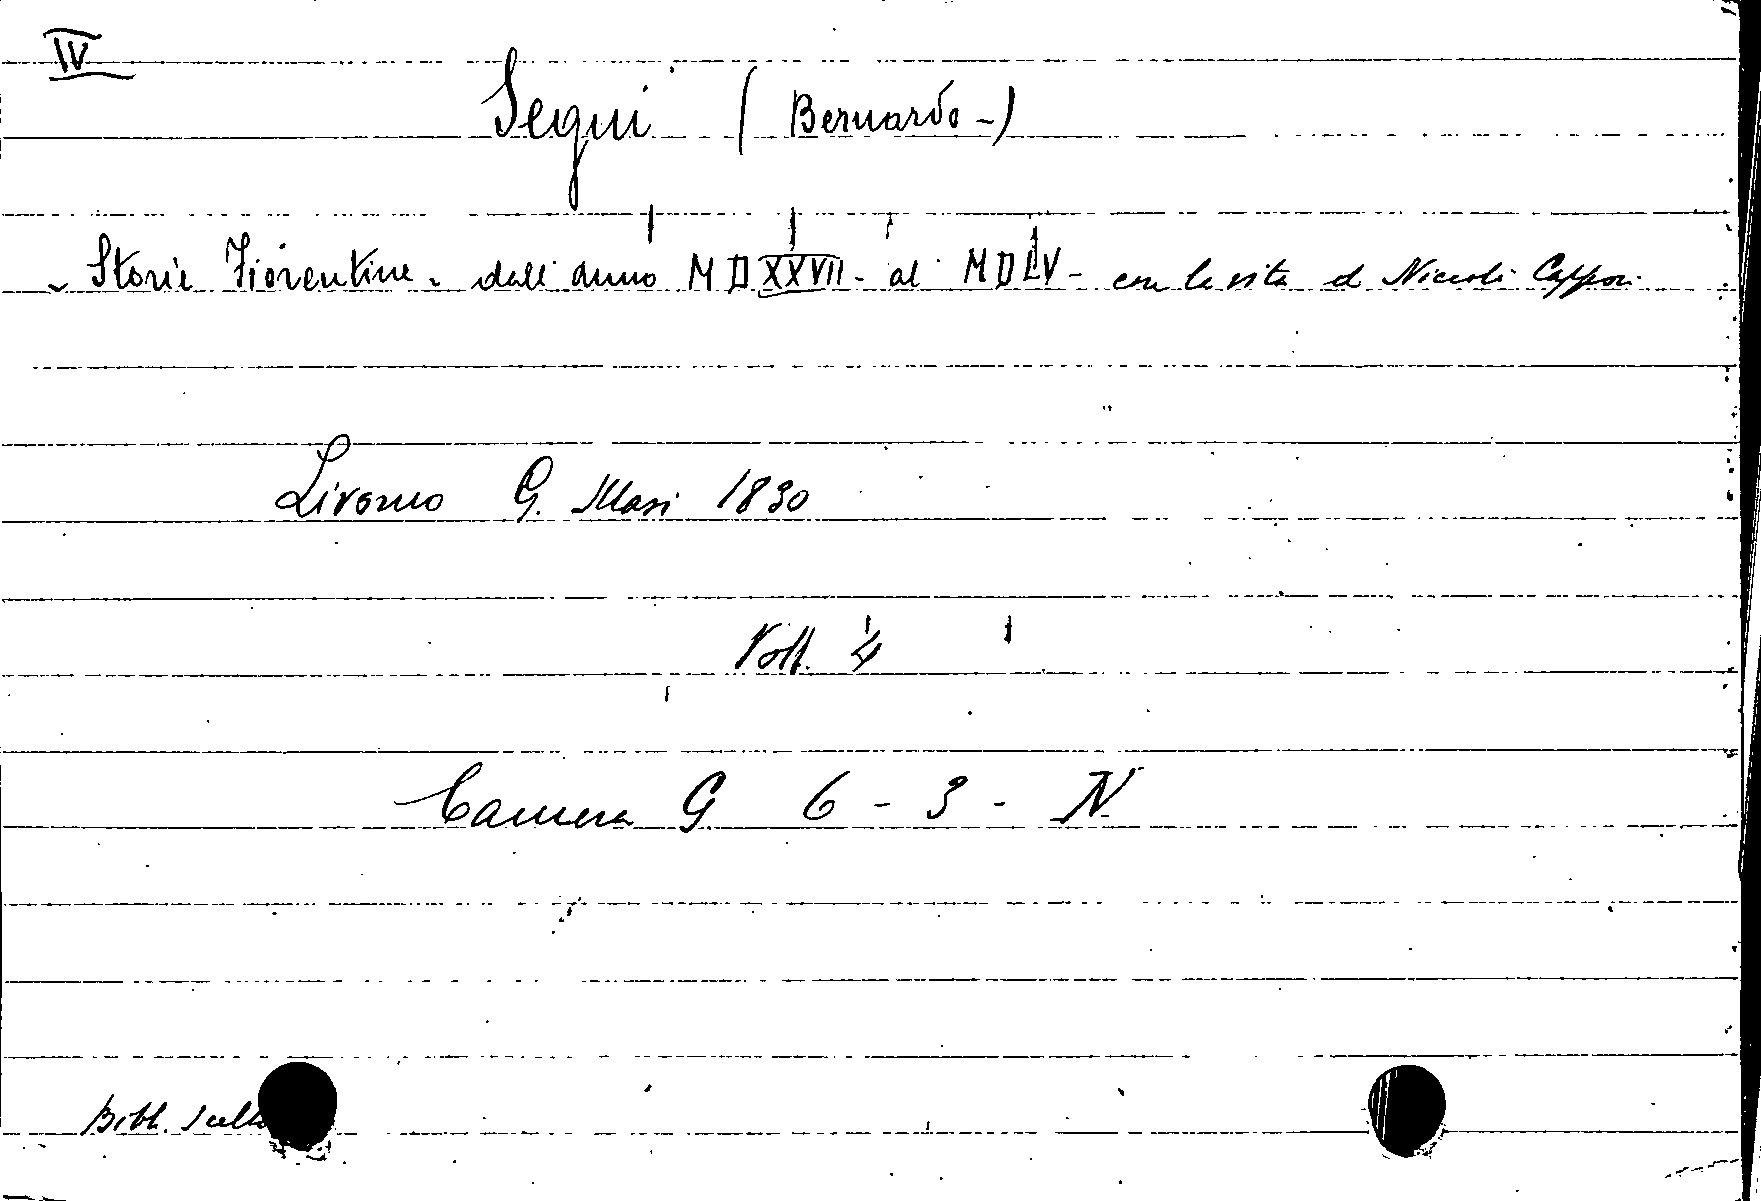 IV
Segni (Bernardo-)
- Storie Fiorentine. dall'anno MDXXVII - al MDLV - con la vita di Niccolò Capponi
Livorno G. Masi 1830
Voll. 4
Camera G 6 - 3 - N
Bibl. scelta